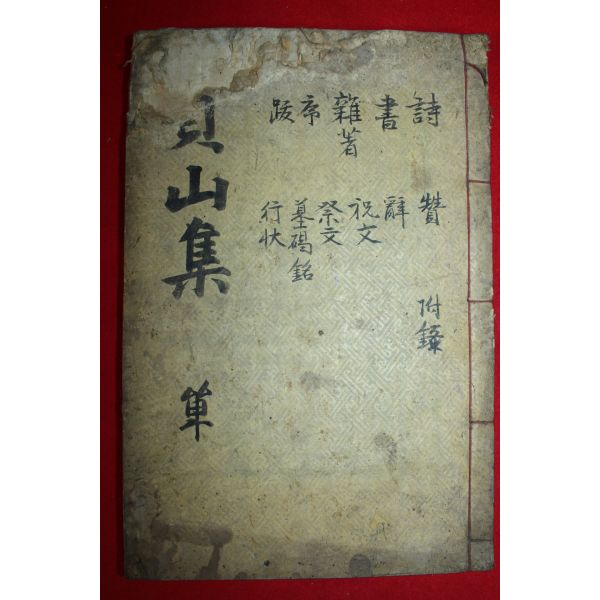 詩
書
雜著
序
跋
贊
辭
祝文
祭文
墓碣銘
行狀
附錄
山集 單